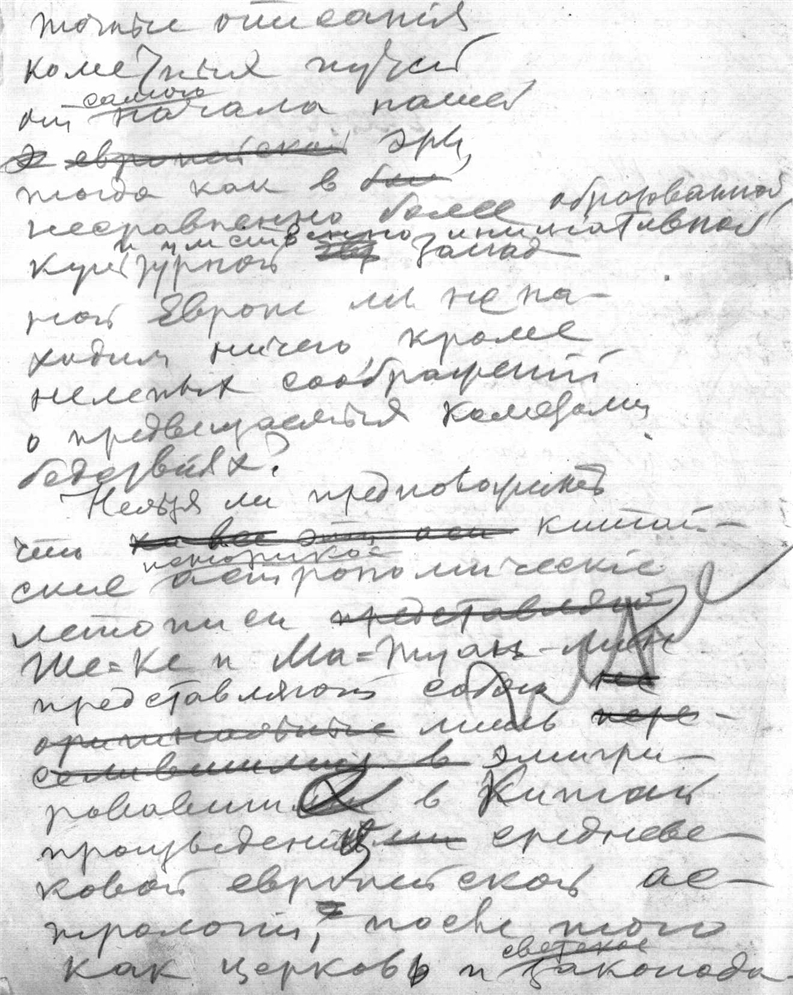 точные описания
кометных путей
от самого начала нашей
европейской эры,
тогда как в
несравненно более образованной
и умственно инициативной
культурной запад
ной Европе мы не на-
ходим ничего, кроме
нелепых соображений
о предвещаемых кометами
бедствиях?
Нельзя ли предположить
что все эти китай-
историко
ские астрономические
летописи представляют
Ше=Ке и Ма=Туан-Линь
представляют собою не
оригинальные лишь пере-
селившимися в эмигри-
ровавши в Китай
произведения средневе-
ковой европейской ас-
трологии, после того
светское
как церковь и законода-